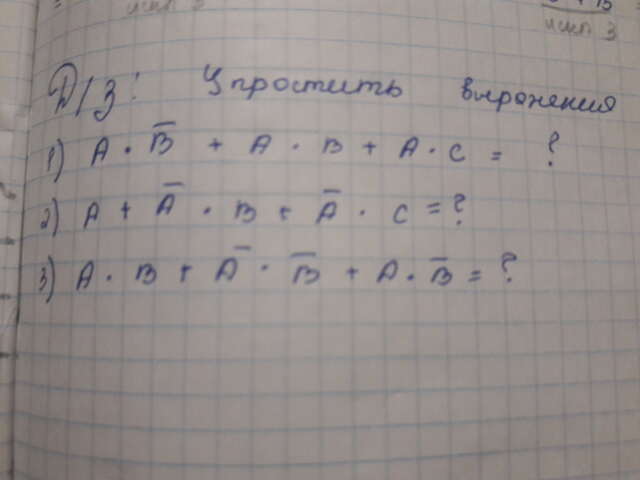 искл 3
+ B
искл 3
Д/З: Упростить выражения
1) A · B̅ + A · B + A · C = ?
2) A + A̅ · B + A̅ · C = ?
3) A · B + A̅ · B̅ + A · B̅ = ?